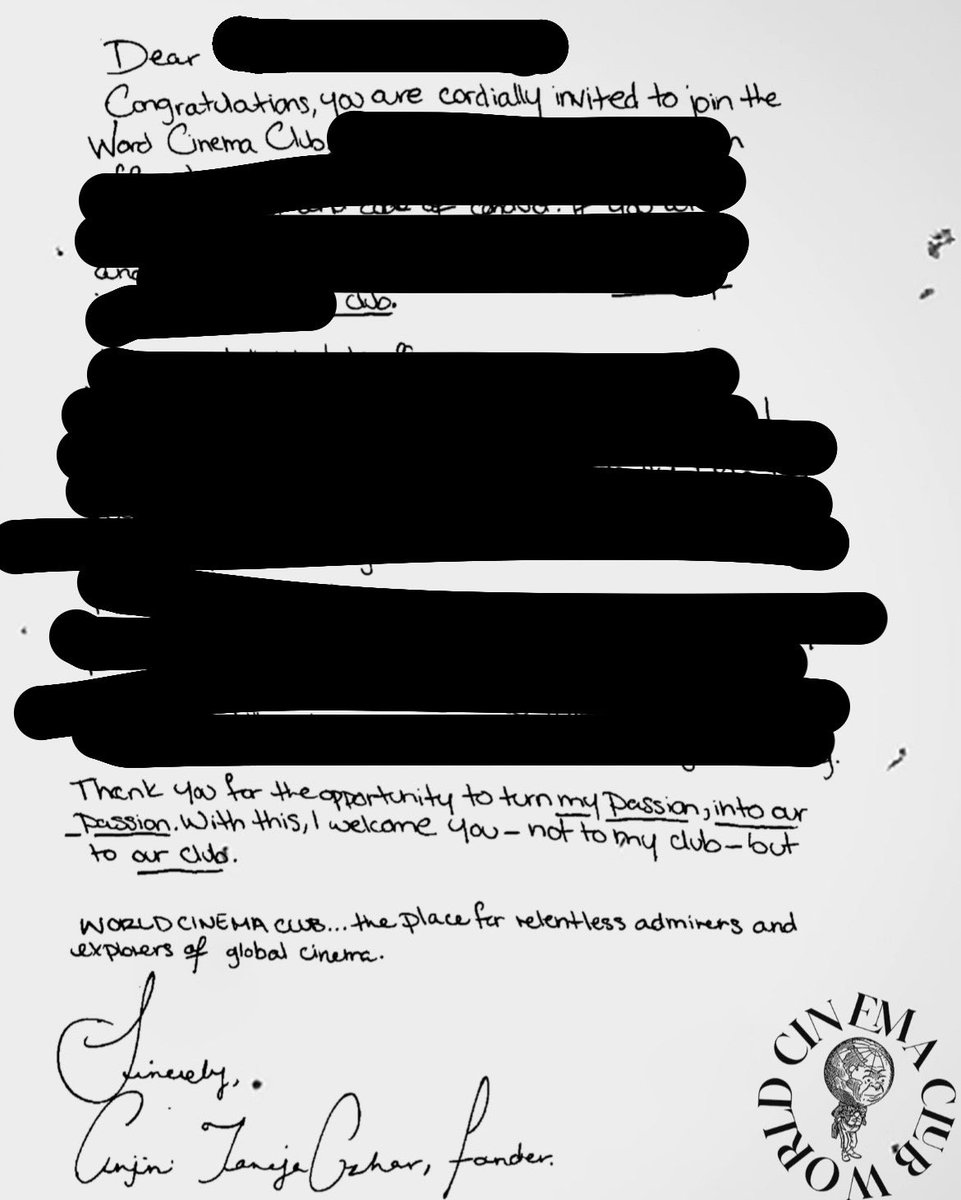 Dear
Congratulations, you are cordially invited to join the
Word Cinema Club
code of conduct. If you
and
club.
Thank you for the opportunity to turn my passion, into our
passion. With this, I welcome you – not to my club – but
to our club.
WORLD CINEMA CLUB... the place for relentless admirers and
explorers of global cinema.
Sincerely,
Anjini Taneja Azhar, founder.
WORLD CINEMA CLUB